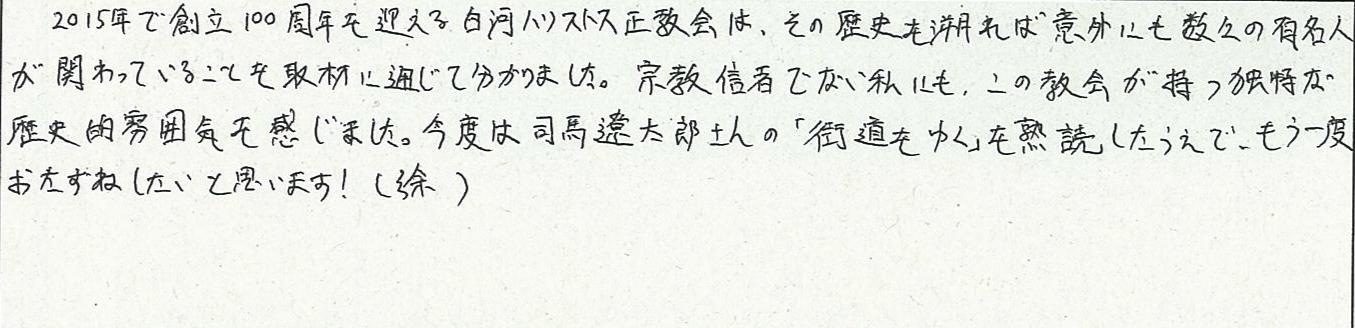 2015年で創立100周年を迎える白河ハリストス正教会は、その歴史を遡れば意外にも数々の有名人
が関わっていることを取材に通じて分かりました。宗教信者でない私にも、この教会が持つ独特な
歴史的雰囲気を感じました。今度は司馬遼太郎さんの「街道をゆく」を熟読したうえで、もう一度
おたずねしたいと思います！（徐）